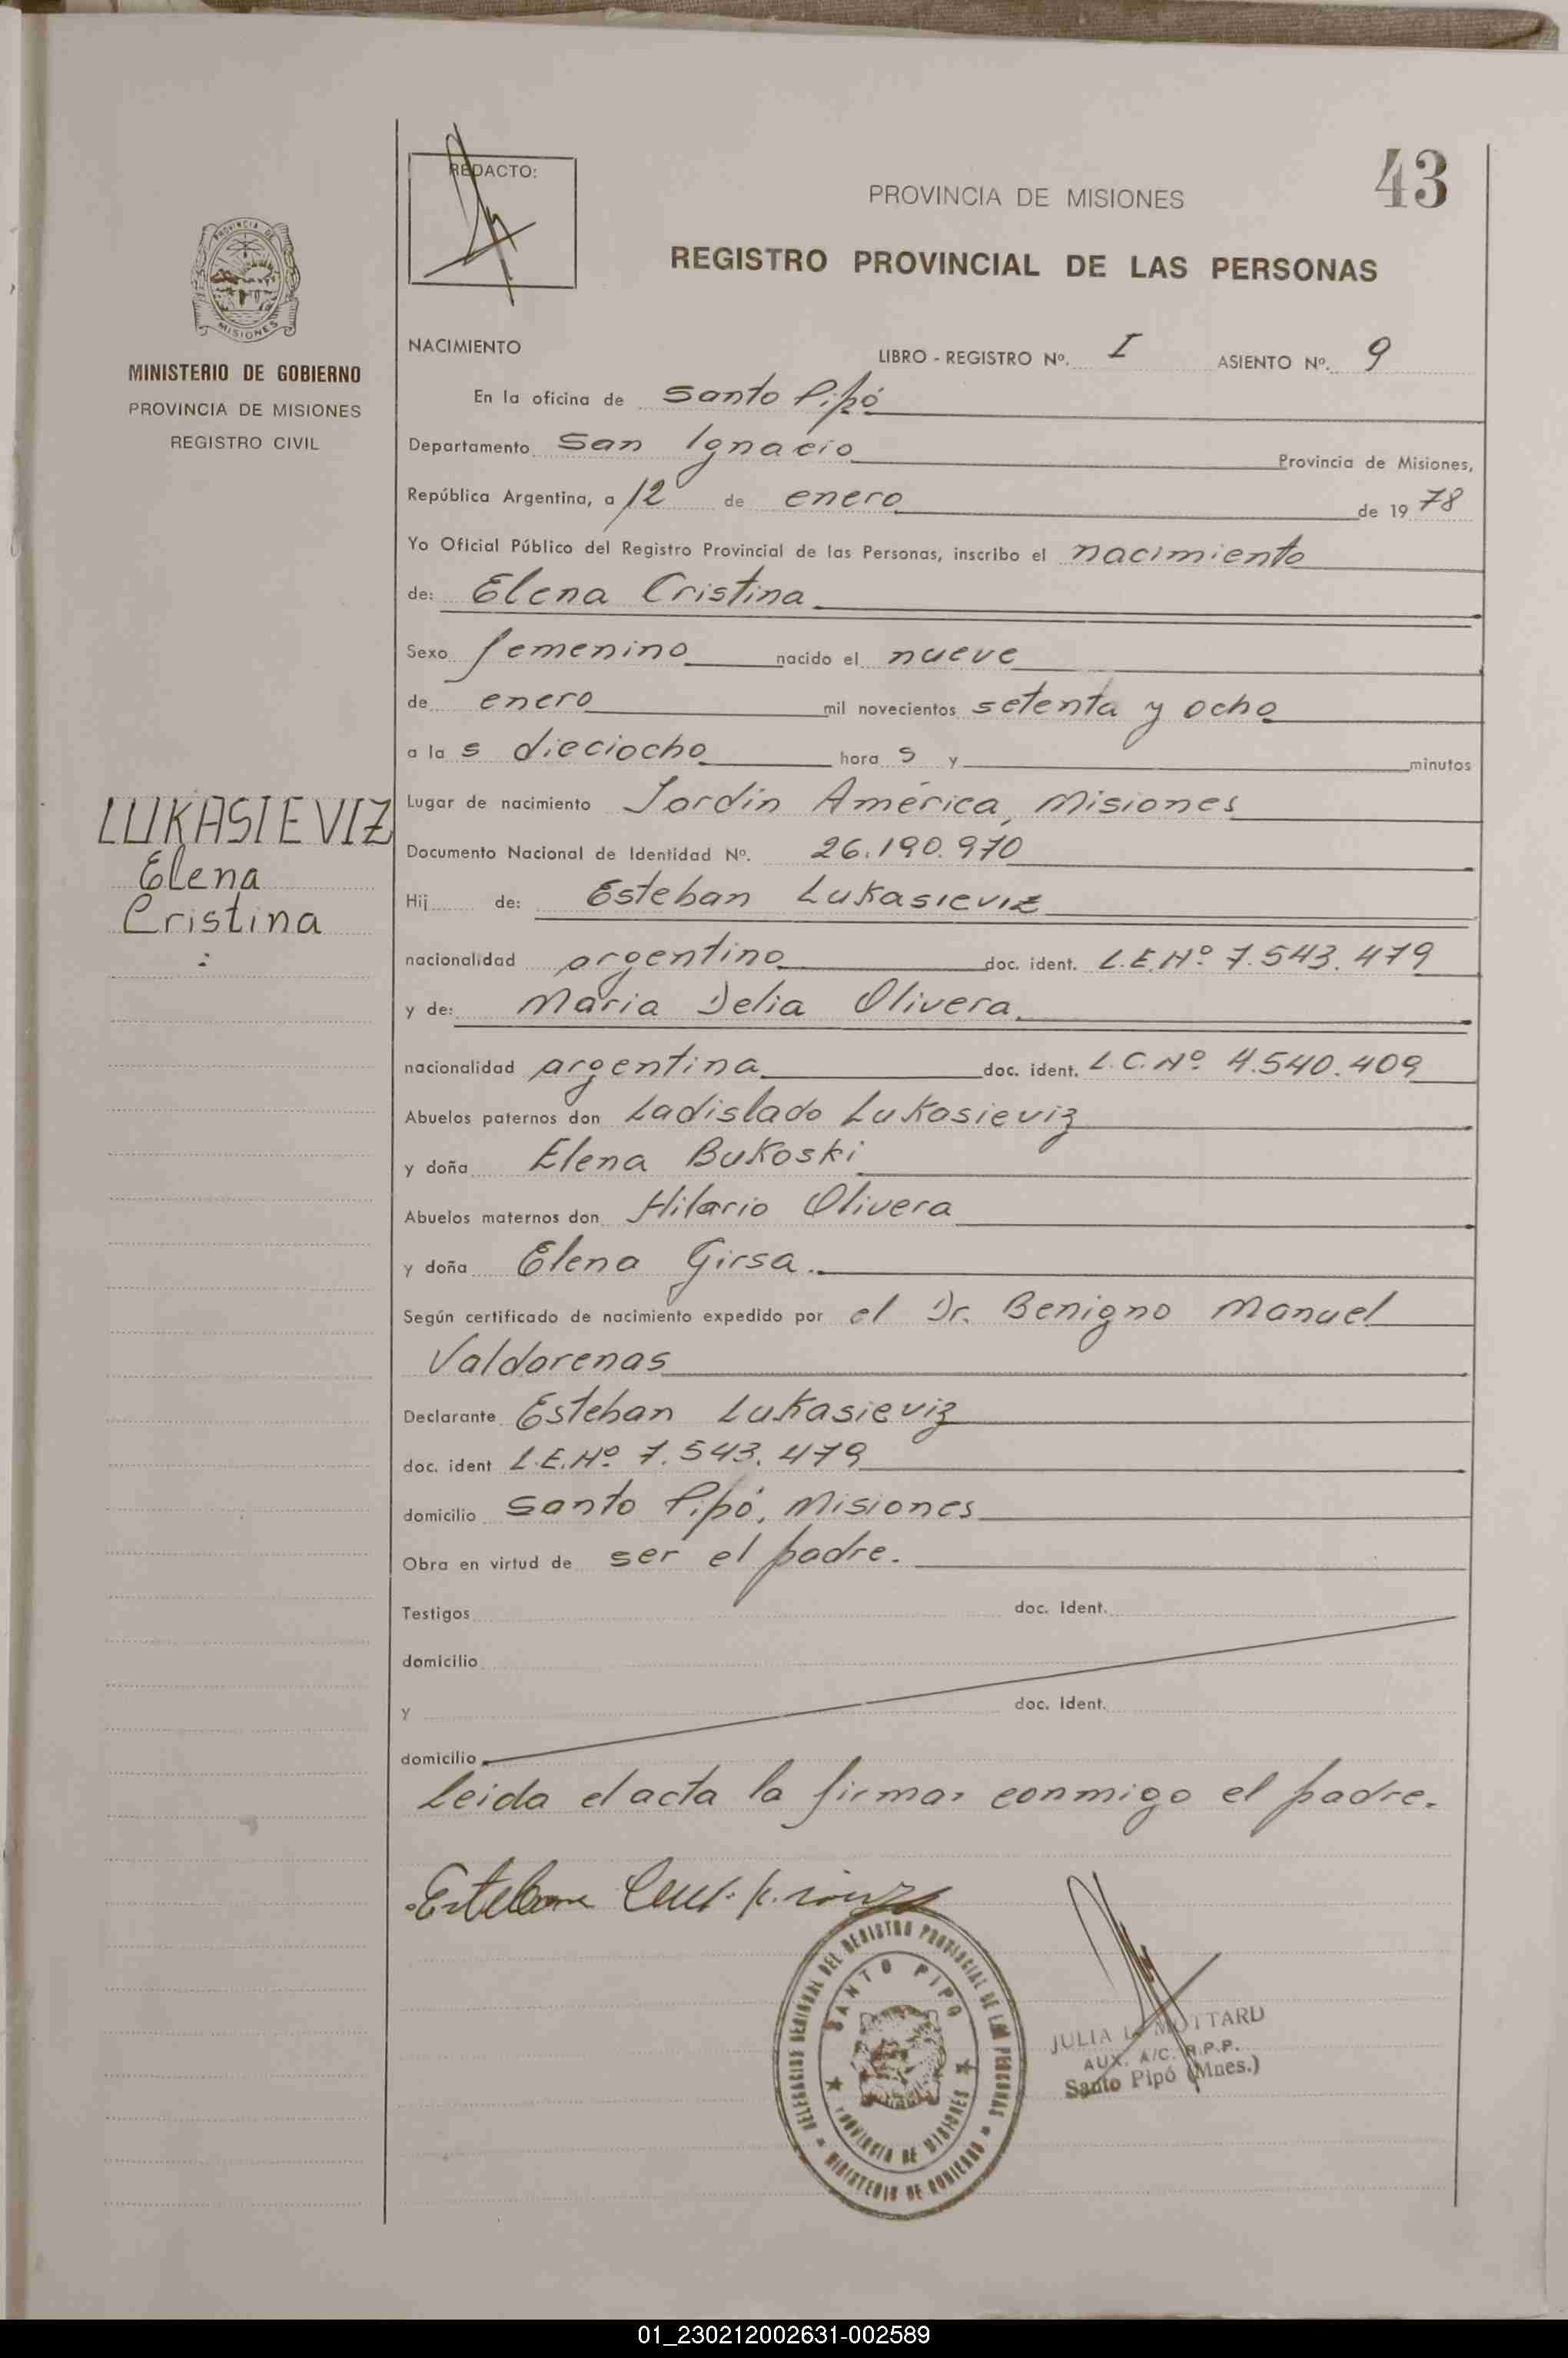 43
REDACTO:
PROVINCIA DE MISIONES
REGISTRO PROVINCIAL DE LAS PERSONAS
PROVINCIA DE
MISIONES
MINISTERIO DE GOBIERNO
PROVINCIA DE MISIONES
REGISTRO CIVIL
NACIMIENTO LIBRO - REGISTRO Nº. I ASIENTO Nº. 9
En la oficina de Santo Pipó
Departamento San Ignacio Provincia de Misiones,
República Argentina, a 12 de enero de 1978
Yo Oficial Público del Registro Provincial de las Personas, inscribo el nacimiento
de: Elena Cristina
Sexo femenino nacido el nueve
de enero mil novecientos setenta y ocho
a la s dieciocho hora s y minutos
LUKASIEVIZ
Elena
Cristina
Lugar de nacimiento Jardín América, Misiones
Documento Nacional de Identidad Nº. 26.190.970
Hij de: Esteban Lukasieviz
nacionalidad argentino doc. ident. L.E.Nº 7.543.479
y de: Maria Delia Olivera
nacionalidad argentina doc. ident. L.C.Nº 4.540.409
Abuelos paternos don Ladislado Lukasieviz
y doña Elena Bukoski
Abuelos maternos don Hilario Olivera
y doña Elena Girsa.
Según certificado de nacimiento expedido por el Dr. Benigno Manuel
Valdorenas
Declarante Esteban Lukasieviz
doc. ident L.E.Nº 7.543.479
domicilio Santo Pipó, Misiones
Obra en virtud de ser el padre.
Testigos doc. ident.
domicilio
y doc. ident.
domicilio
Leida el acta la firma, conmigo el padre.
Esteban
DELEGACION SECCIONAL DEL REGISTRO PROVINCIAL DE LAS PERSONAS
SANTO PIPO
PROVINCIA DE MISIONES
MINISTERIO DE GOBIERNO
JULIA L. MOTTARD
AUX. A/C. R.P.P.
Santo Pipó (Mnes.)
01_230212002631-002589